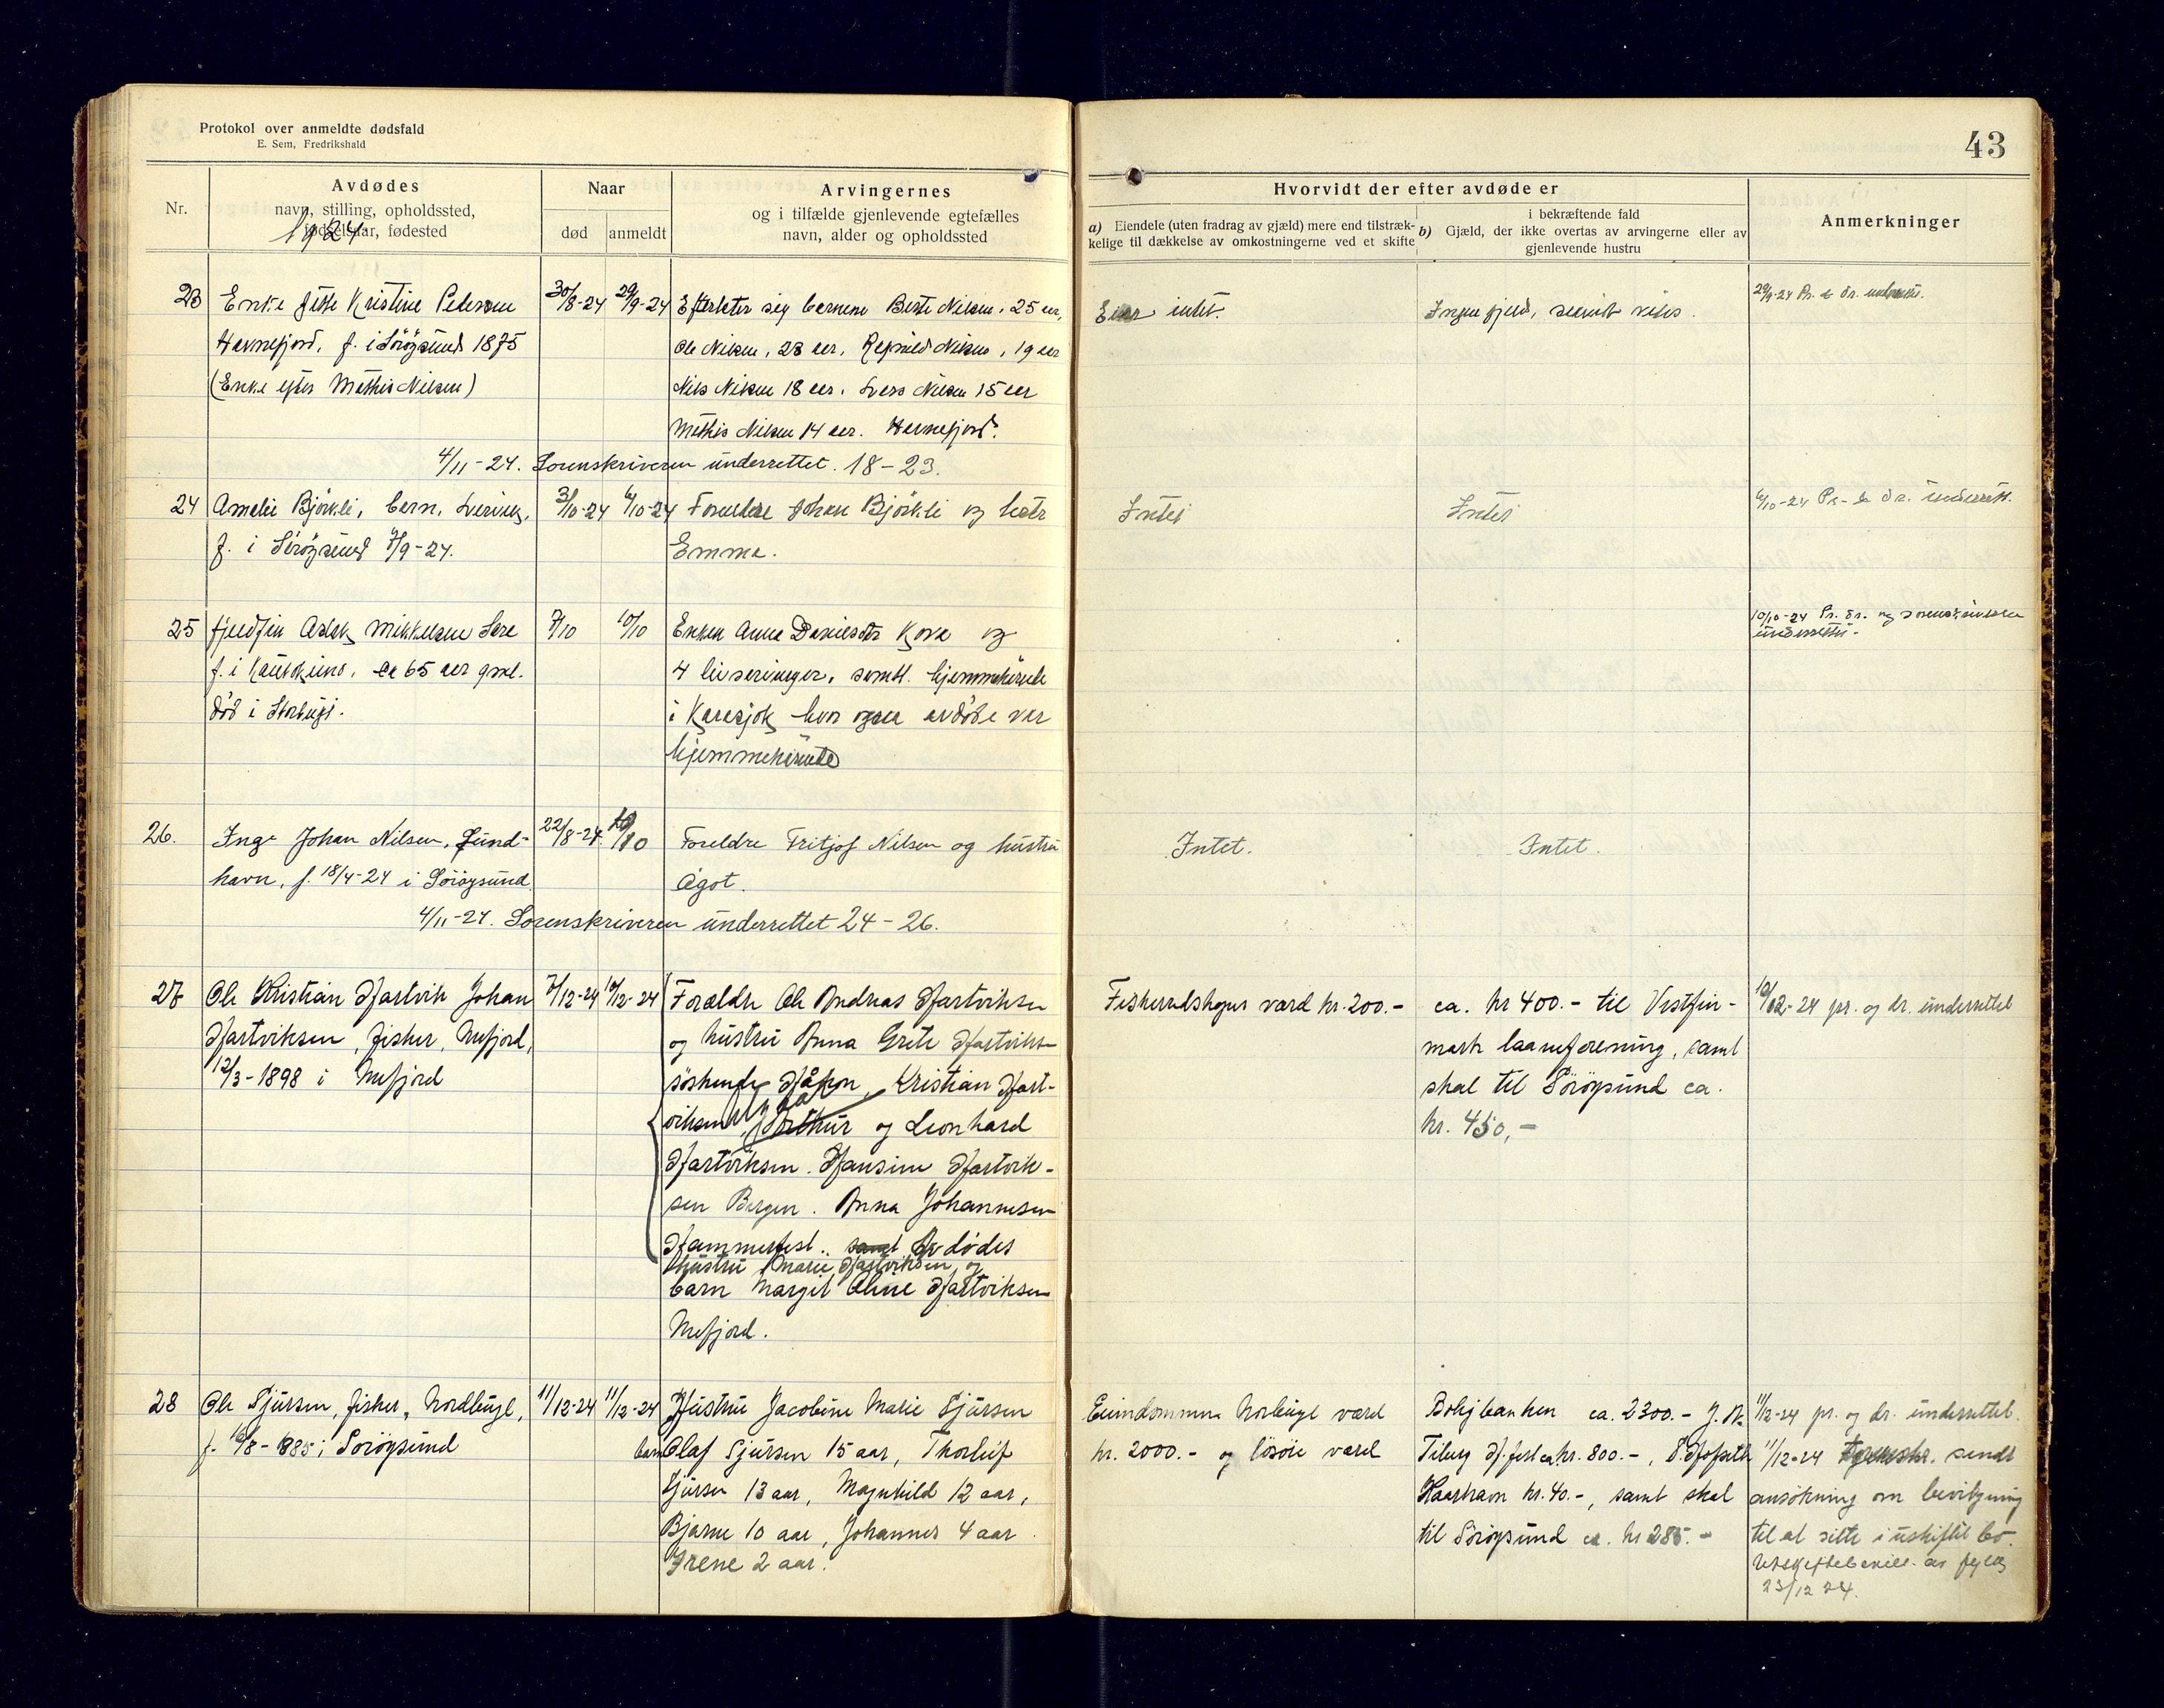 Protokol over anmeldte dødsfald
E. Sem, Fredrikshald
43
Nr.
Avdødes
navn, stilling, opholdssted,
fødselsaar, fødested
1924
Naar
død
anmeldt
Arvingernes
og i tilfælde gjenlevende egtefælles
navn, alder og opholdssted
Hvorvidt der efter avdøde er
a) Eiendele (uten fradrag av gjæld) mere end tilstræk-
kelige til dækkelse av omkostningerne ved et skifte
i bekræftende fald
b) Gjæld, der ikke overtas av arvingerne eller av
gjenlevende hustru
Anmerkninger
23
Enke Kristine Pedersen
Havnefjord, f. i Söröysund 1875
(Enke efter Mathis Nilsen)
30/8-24
29/9-24
Efterlater sig barnene Berte Nilsen, 25 aar,
Ole Nilsen, 23 aar, Ragnvald Nilsen, 19 aar
Nils Nilsen 18 aar, Lars Nilsen 15 aar
Mathis Nilsen 14 aar. Havnefjord.
Eier intet.
Ingen gjeld,
29/9-24 Pr. & dr. underrettet.
4/11-24. Sorenskriveren underrettet. 18-23.
24
Amalie Björkli, barn, Lerviks,
f. i Söröysund /9-24.
3/10-24
6/10-24
Foreldre Johan Björkli og hustr
Emma.
Intet
Intet
6/10-24 Pr. & dr. underrett.
25
fjeldfin Aslak Mikkelsen Sara
f. i Kautokeino, ca 65 aar gml.
död i Storbugt.
7/10
10/10
Enken Anna Danielsdtr Kova og
4 livsarvinger, samtl. hjemmehörende
i Karasjok hvor ogsaa avdöde var
hjemmehörende
10/10-24 Pr. dr. og sorenskriveren
underrettet.
26.
Inga Johan Nilsen, Sund-
havn, f. 18/4-24 i Söröysund
22/8-24
/10
Foreldre Fritjof Nilsen og hustru
Ågot.
Intet.
Intet.
4/11-24. Sorenskriveren underrettet 24-26.
27
Ole Kristian Hartvik Johan
Hartviksen, fisker, Mefjord,
12/3-1898 i Mefjord
7/12-24
10/12-24
Forældre Ole Andreas Hartviksen
og hustru Anna Grete Hartviksen
söskende Håkon, Kristian Hart-
viksen, Arthur og Leonhard
Hartviksen. Hansine Hartvik-
sen Bergen. Anna Johannesen
Hammerfest.. samt Avdödes
hustru Marie Hartviksen og
barn Margit Oline Hartviksen
Mefjord.
Fiskeredskaper værd kr. 200.-
ca. kr 400.- til Vestfin-
mark laaneforening, samt
skat til Söröysund ca.
kr. 450,-
10/12-24 pr. og dr. underrettet
28
Ole Sjursen, fisker, Nordbugt,
f. 16/8-1885 i Söröysund
11/12-24
11/12-24
Hustru Jacobine Marie Sjursen
barn Olaf Sjursen 15 aar, Thorleif
Sjursen 13 aar, Magnhild 12 aar,
Bjarne 10 aar, Johannes 4 aar
Irene 2 aar.
Eiendommen Norbugt værd
kr. 2000.- og lösöre værd
Boligbanken ca. 2300.- J. A.
Tiberg H.fest ca kr. 800.-,
Kaarhavn kr. 40.-, samt skat
til Söröysund ca. kr 285.-
11/12-24 pr. og dr. underrettet.
11/12-24 sendt
ansökning om bevilgning
til at sitte i uskiftet bo.
av fylks
23/12 24.